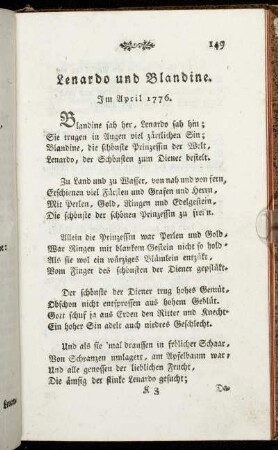 149
Lenardo und Blandine.
Im April 1776.
Blandine sah her, Lenardo sah hin;
Sie trugen in Augen viel zärtlichen Sin;
Blandine, die schönste Prinzessin der Welt,
Lenardo, der Schönsten zum Diener bestelt.
Zu Land und zu Wasser, von nah und von fern,
Erschienen viel Fürsten und Grafen und Herrn,
Mit Perlen, Gold, Ringen und Edelgestein,
Die schönste der schönen Prinzessin zu frei'n.
Allein die Prinzessin war Perlen und Gold,
War Ringen mit blankem Gestein nicht so hold,
Als sie wol ein würziges Blümlein entzükt,
Vom Finger des schönsten der Diener gepflükt.
Der schönste der Diener trug hohes Gemüt,
Obschon nicht entsprossen aus hohem Geblüt.
Gott schuf ja aus Erden den Ritter und Knecht.
Ein hoher Sin adelt auch niedres Geschlecht.
Und als sie 'mal draussen in fröhlicher Schaar,
Von Schranzen umlagert, am Apfelbaum war,
Und alle genossen der lieblichen Frucht,
Die ämsig der flinke Lenardo gesucht;
K 3
Da